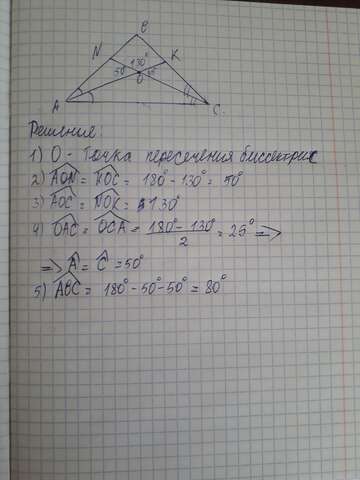 B
N 130° K
50° O 50°
A C
Решение:
1) O - Точка пересечения биссектрис
2) AON = KOC = 180° - 130° = 50°
3) AOC = NOK = 130°
4) OAC = OCA = (180° - 130°)/2 = 25° =>
=> A = C = 50°
5) ABC = 180° - 50° - 50° = 80°